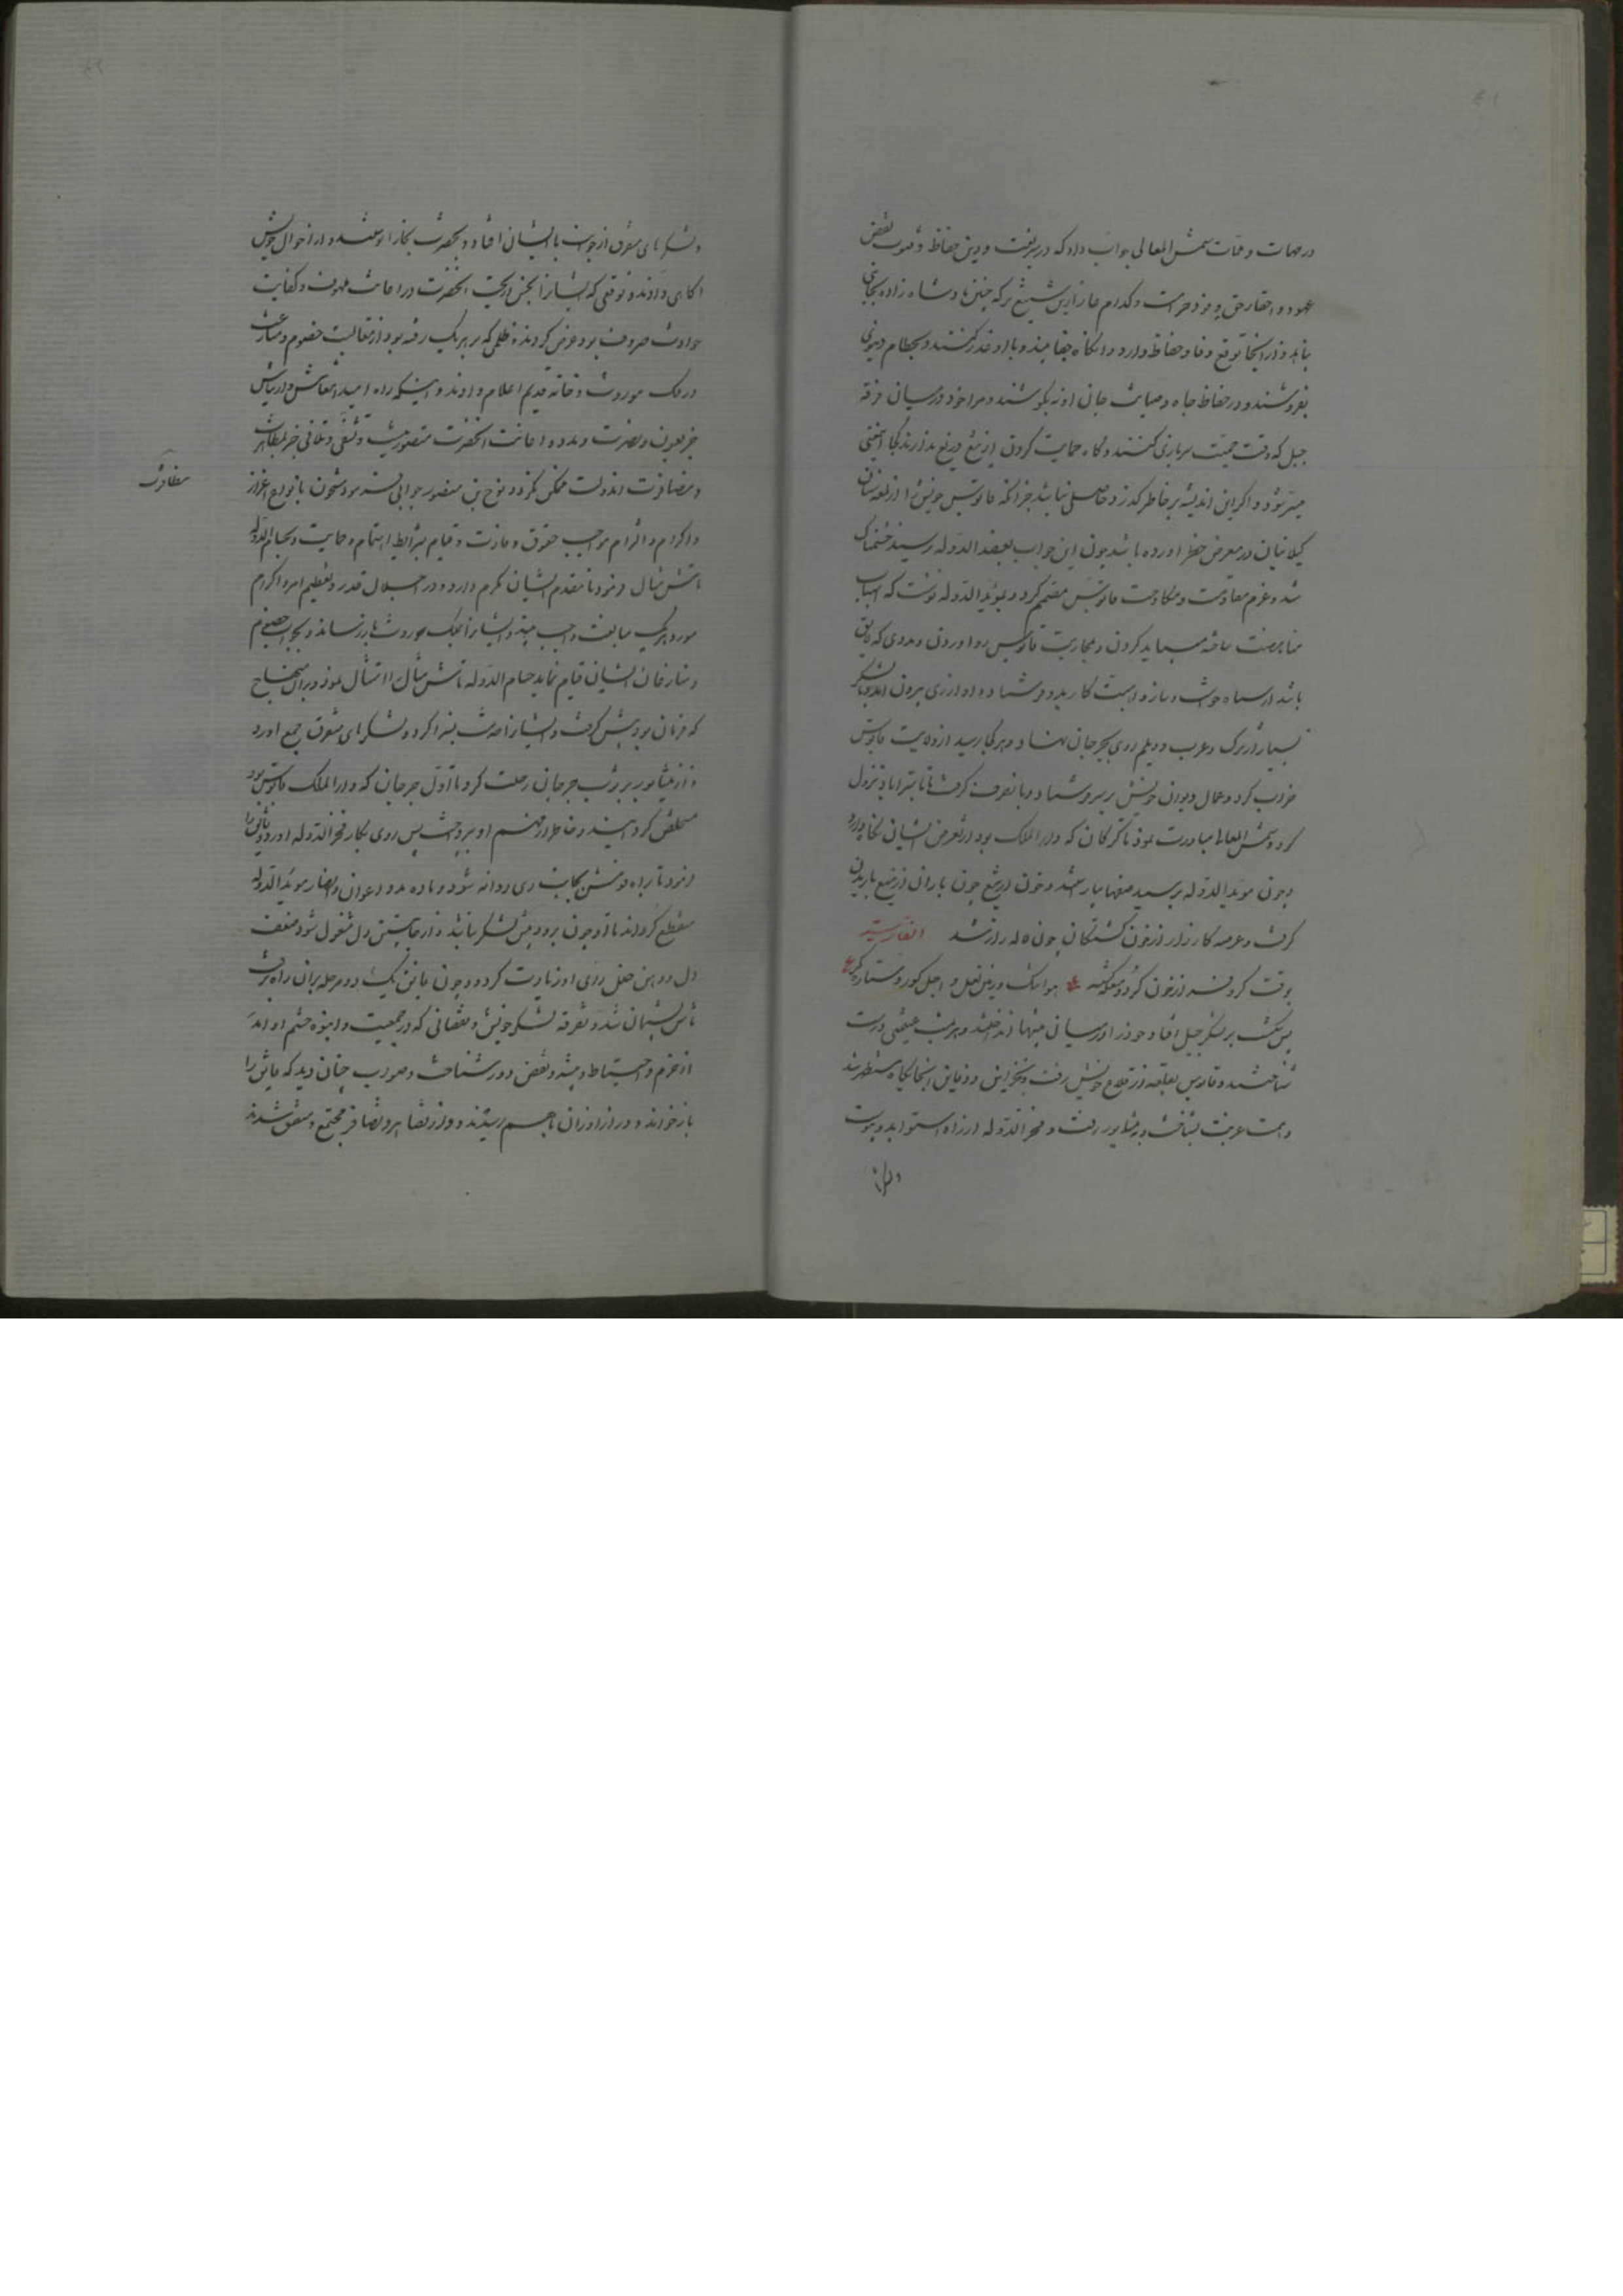 در مهمات و ملمات شمس المعالی جواب داد که در شریعت و دین حفاظ و صوب نقض
عهود و احقار حق وفود حرمت و کدام عار ازین شنیع‌تر که چنین پادشاه زاده بجانبی
پناهد و از آنجا توقع وفا و حفاظ دارد و آنگاه جفا بیند و با او غدر کنند و بحطام دنیوی
بفروشند و در حفاظ جاه و صیانت جان او نکوشند و مرا خود در میان فرقه
جبل که وقت حمیت سربازی کنند و گاه حمایت کردن از تیغ دریغ ندارند کجا
میسر شود و اگر این اندیشه بر خاطر گذرد حاصلی نباشد جز آنکه قابوس خویش را از طعنه زنان
گیلانیان در معرض خطر آورده باشد چون این جواب بعضد الدوله رسید خشمناک
شد و عزم مقاومت و مکاوحت قابوس مصمم کرد و بمؤید الدوله نوشت که اسباب
مناهضت ساخته میباید کردن و بمحاربت قابوس رو آوردن و مددی که لایق
باشد از سپاه و ساز و اهبت کار بدو فرستاد و او از ری بیرون آمد با لشکر
بسیار از ترک و عرب و دیلم روی بجرجان نهاد و بهر کجا رسید از ولایت قابوس
خراب کرد و عمال و دیوان خویش بر سر و با تصرف گرفت تا باستراباد نزول
کرد و شمس المعالی مبادرت نمود تا گرگان که دار الملک بود از تعرض ایشان نگاه دارد
و چون مؤید الدوله برسید صفها بیاراستند و خون از تیغ چون باران از میغ باریدن
گرفت و عرصه کارزار از خون کشتگان چون لاله زار شد الفارسیه
بوقت کر و فر از خون گرد و معرکه هوا زمین لعل و اجل کور و ستاره کر
پس شکست بر لشکر جیل افتاد و خود را در میان بیشها انداختند و هزیمت غنیمتی درست
شناختند و قابوس بقلعه از قلاع خویش رفت و بخزاین و دفاین آنجایگاه مستظهر شد
و همت عزیمت بشتافت و بنیشابور رفت و فخر الدوله از راه استوا بدو پیوست
و لشکرهای متفرق از جوانب با ایشان افتاد و بحضرت بخارا نوشتند و از احوال خویش
آگاهی دادند و توقعی که ایشانرا بحسن اریحیت آنحضرت در اغاثت ملهوف و کفایت
حوادث صروف بود عرض کردند و ظلمی که بر هریک رفته بود از مغالبت خصوم و منازعت
در ملک موروث و خانه قدیم اعلام دادند و اینکه راه امید انتعاش و ارتیاش
جز بعون و نصرت و مدد و اعانت آنحضرت متصور نیست و تشفی و تلافی جز بمظاهرت
و مضافرت آندولت ممکن نگردد نوح بن منصور جوابی فرمود مشحون بانواع اعزاز
و اکرام و التزام مواجب حقوق وفادت و قیام بشرایط اهتمام و حمایت و بحسام الدوله
تاش مثال فرمود تا مقدم ایشان مکرم دارد و در اجلال قدر و تعظیم امر و اکرام
مورد هریک مبالغت واجب بیند و ایشانرا بملک موروث باز رساند و بجواب خصوم
و منازعان ایشان قیام نماید حسام الدوله تاش مثال را امتثال نمود و بر آن منهاج
که فرمان بود پیش گرفت و ایشانرا خدمت بسزا کرد و لشکرهای متفرق جمع آورد
و از نیشابور بر صوب جرجان رحلت کرد تا اول جرجان که دار الملک قابوس بود
مستخلص گرداند و خاطر از مهم او بپرداخت پس روی بکار فخر الدوله آورد و فایق را
فرمود تا براه قومش بجانب ری روانه شود و ماده مدد و اعوان و انصار مؤید الدوله
منقطع گرداند تا او چون برود پیش لشکر باشد و از جانبین دل مشغول شود و ضعف
دل و وهن خلل رای او زیادت گردد و چون فایق یک دو مرحله بر آن راه برفت
تاش پشیمان شد و تفرقه لشکر خویش و نقصانی که در جمعیت و انبوه حشم او آمد
از حزم و احتیاط و نقض دور شناخت و صواب چنان دید که فایق را
باز خواند و دراز از آن تا بهم رسیدند و از تضافر مجتمع و متفق شدند
مظافرت